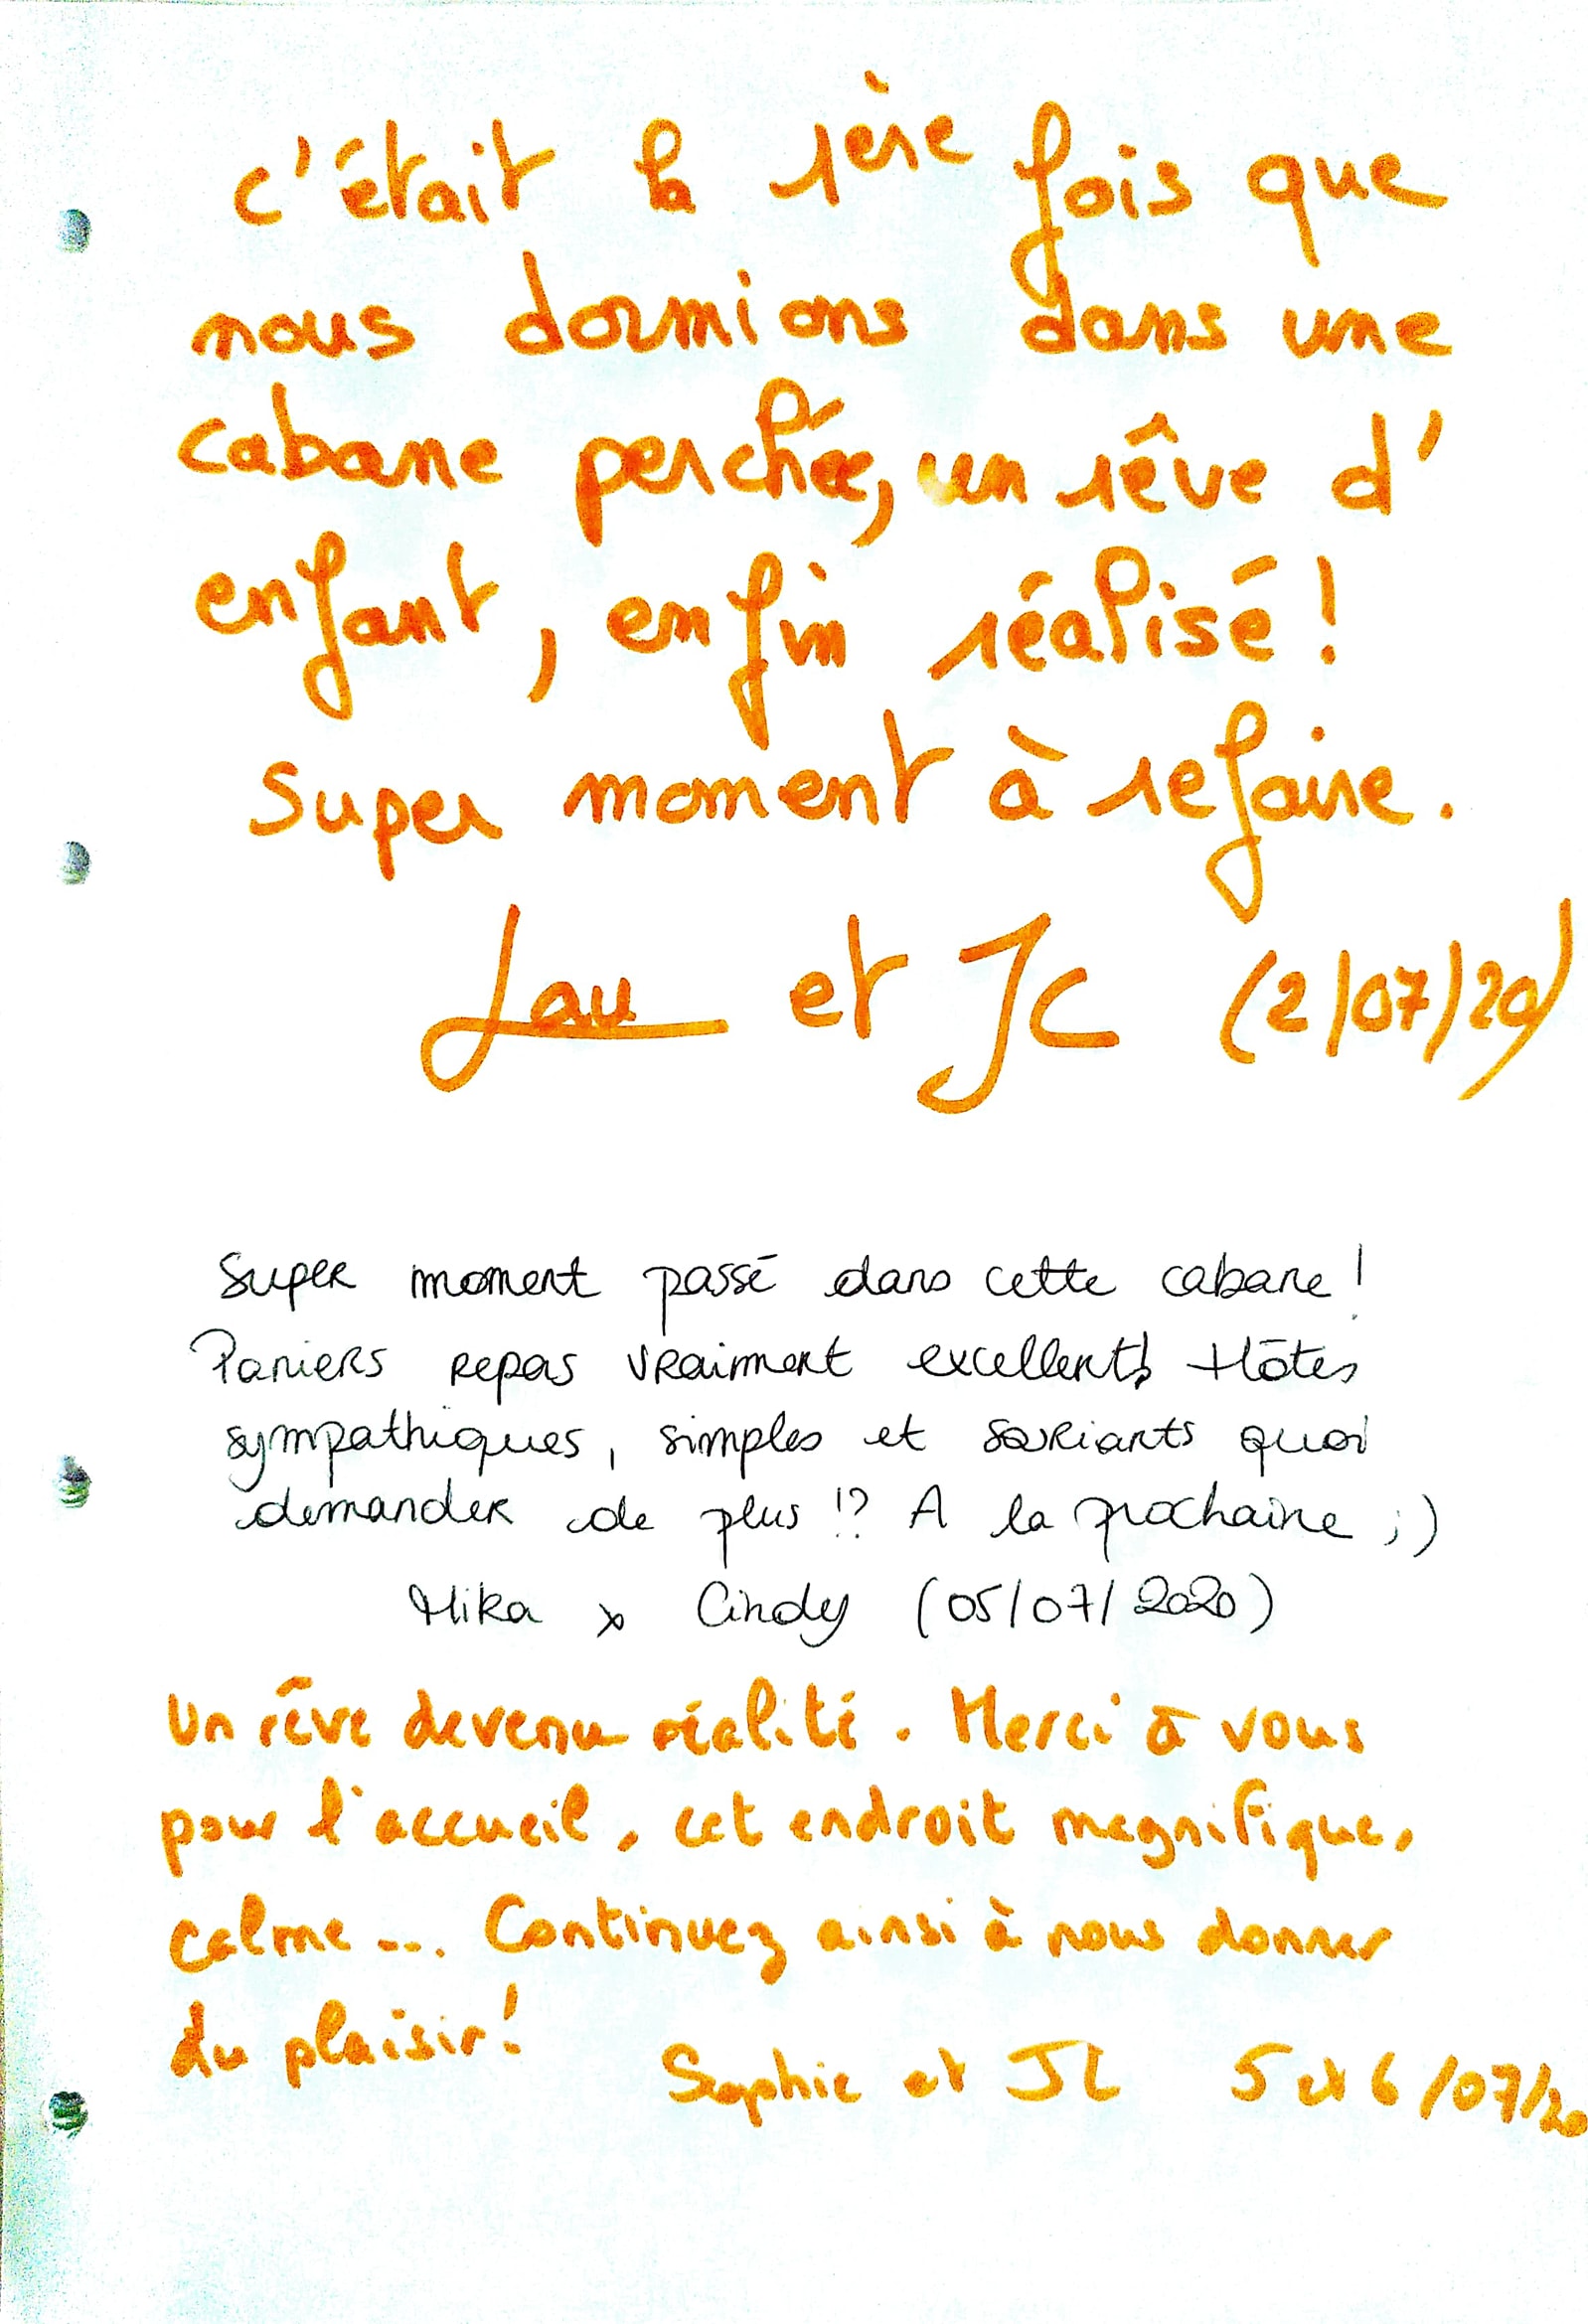 c'était la 1ère fois que
nous dormions dans une
cabane perchée, un rêve d'
enfant, enfin réalisé !
Super moment à refaire.
Lau et JC (2/07/20)
Super moment passé dans cette cabane !
Paniers repas vraiment excellents! Hôtes
sympathiques, simples et souriants quoi
demander de plus !? A la prochaine ;)
Mika & Cindy (05/07/2020)
Un rêve devenu réalité. Merci à vous
pour l'accueil, cet endroit magnifique,
calme... Continuez ainsi à nous donner
du plaisir!
Sophie et JL 5 et 6/07/20